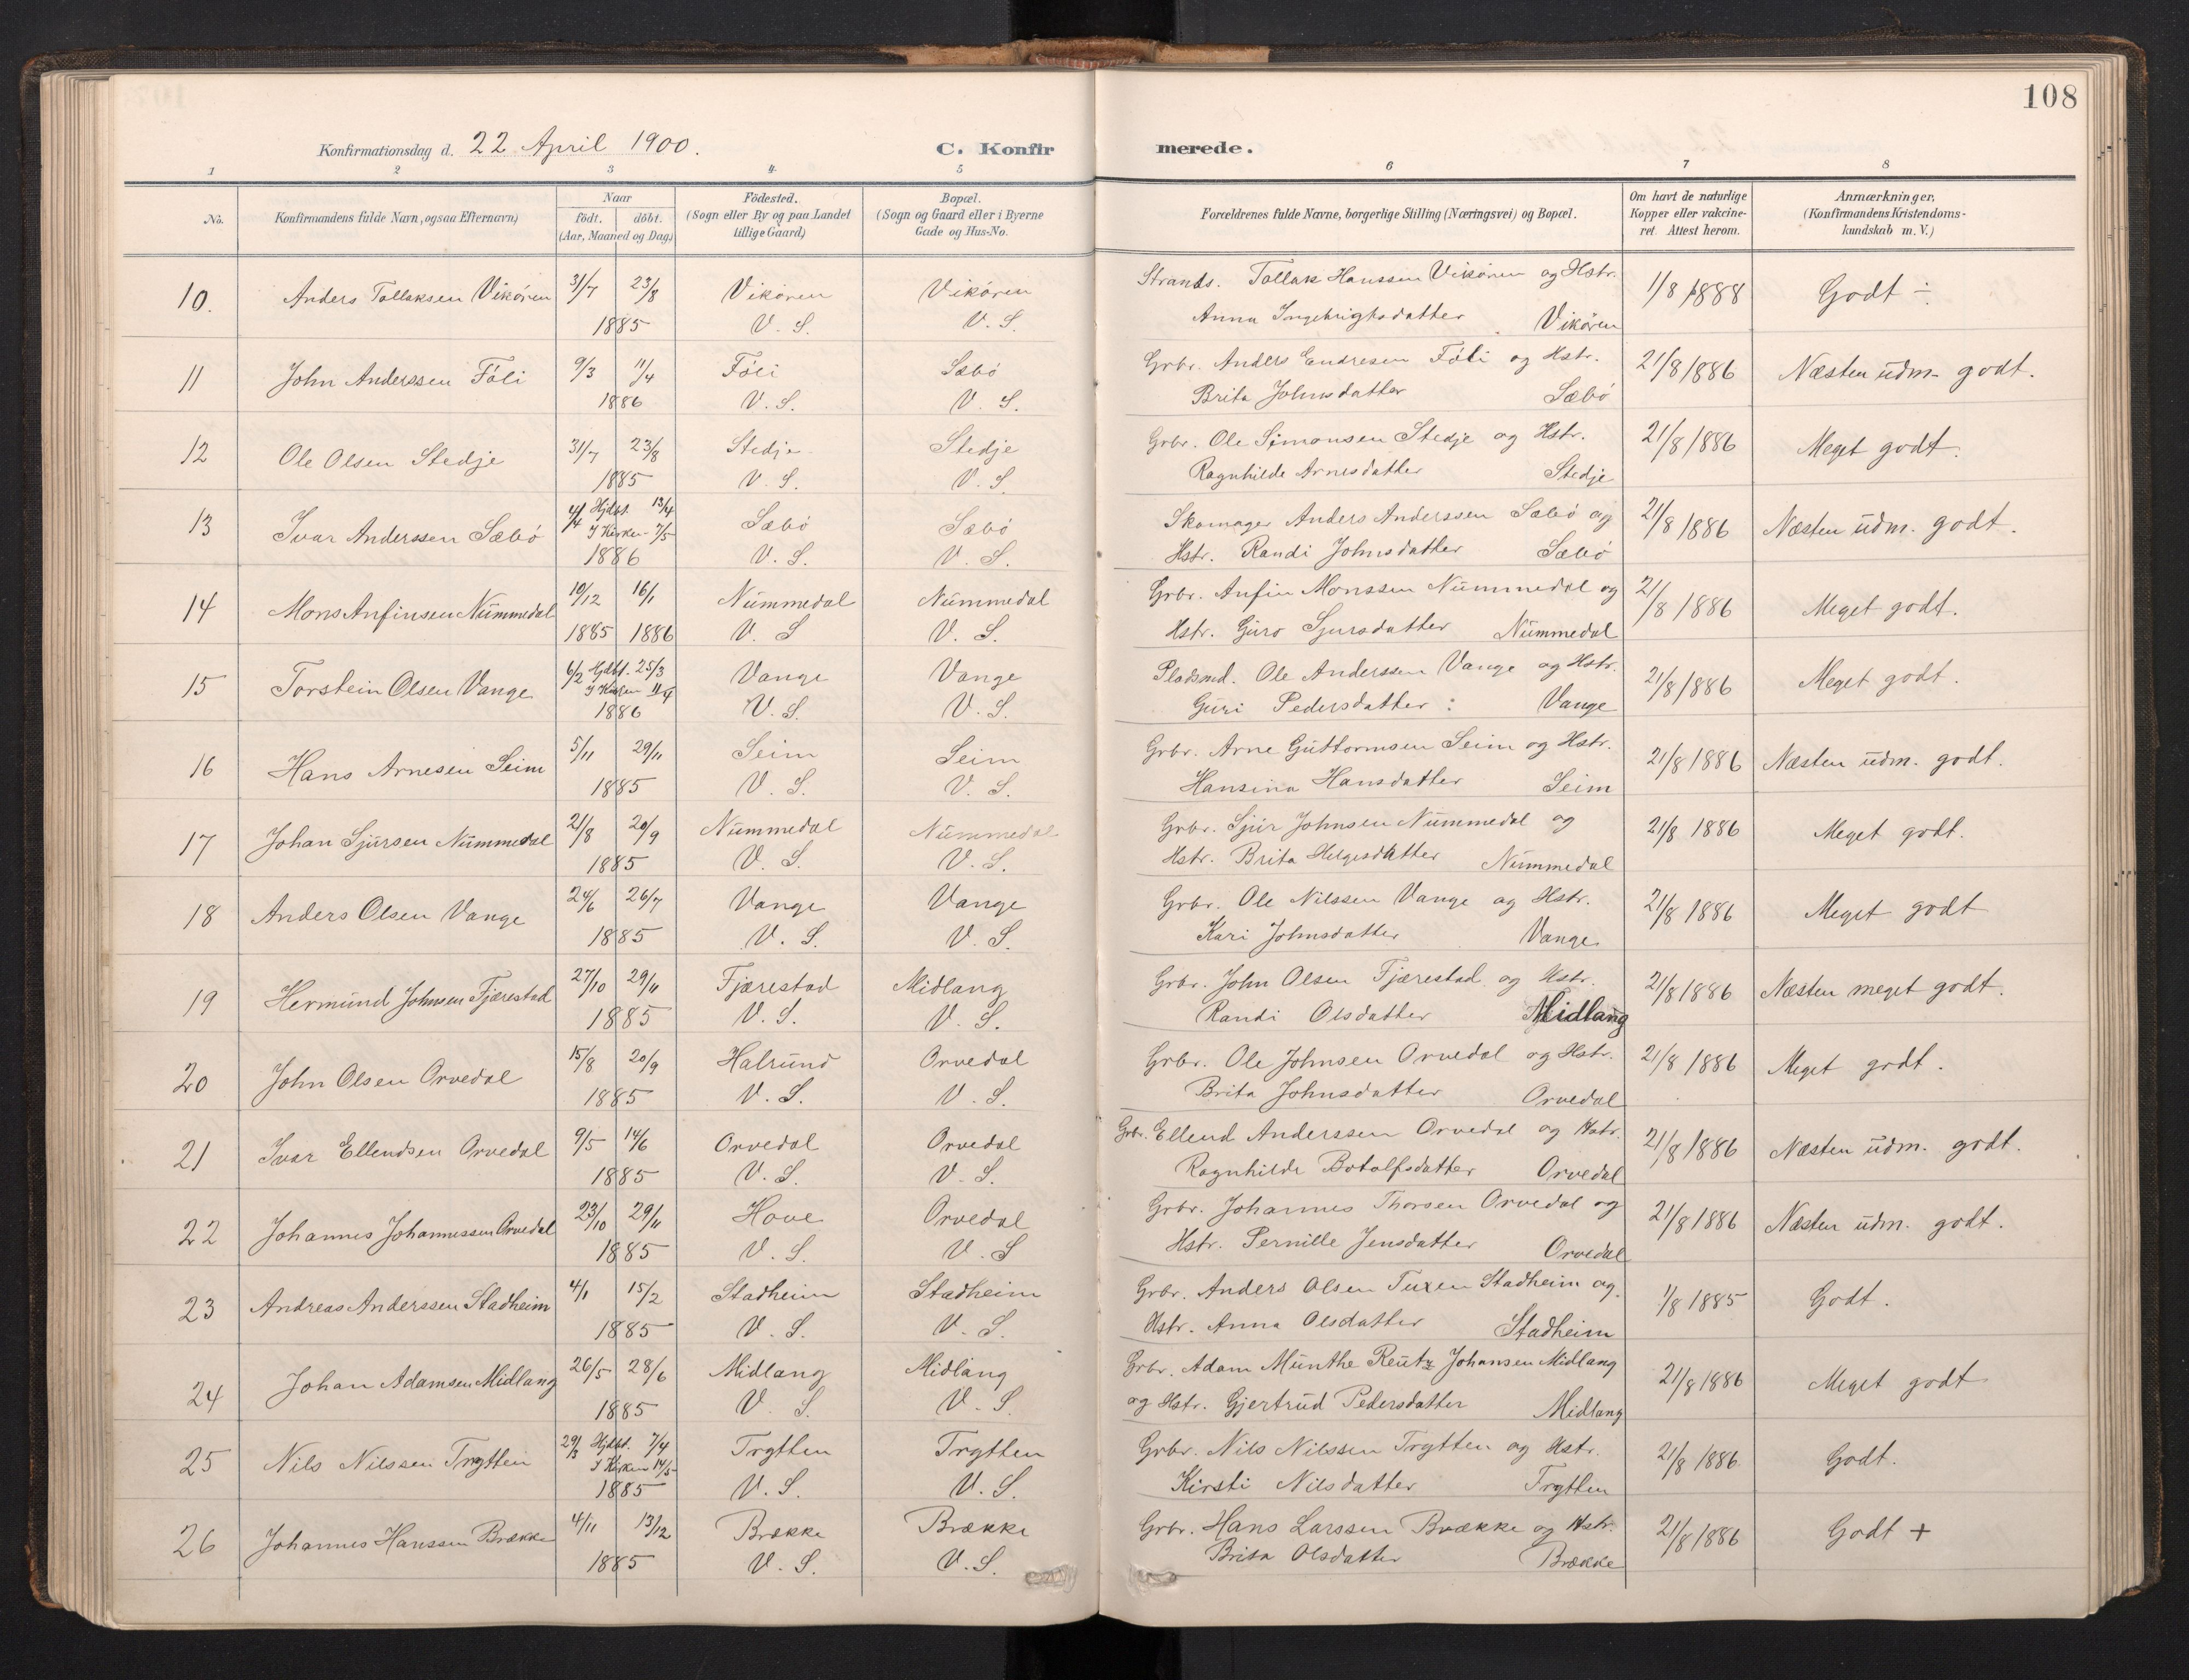 108
Konfirmationsdag d. 22 April 1900.
C. Konfirmerede.
1 2 3 4 5 6 7 8
No.
Konfirmandens fulde Navn, ogsaa Efternavn)
Naar
födt. döbt.
(Aar, Maaned og Dag.)
Födested.
(Sogn eller By og paa Landet
tillige Gaard)
Bopæl.
(Sogn og Gaard eller i Byerne
Gade og Hus-No.
Forældrenes fulde Navne, borgerlige Stilling (Næringsvei) og Bopæl.
Om havt de naturlige
Kopper eller vakcine-
ret. Attest herom.
Anmærkninger,
(Konfirmandens Kristendoms-
kundskab m. V.)
10. Anders Tollaksen Vikören 31/7 23/8 Vikören Vikören Strands. Tollak Hanssen Vikören og Hstr. 1/8 1888 Godt ÷
1885 V. S. V. S. Anna Ingebrigtsdatter Vikören
11 John Anderssen Föli 9/3 11/4 Föli Sæbö Grbr. Anders Endresen Föli og Hstr. 21/8 1886 Næsten udm. godt.
1886 V. S. V. S. Brita Johnsdatter Sæbö
12 Ole Olsen Stedje 31/7 23/8 Stedje Stedje Grbr. Ole Simonsen Stedje og Hstr. 21/8 1886 Meget godt.
1885 V. S. V. S. Ragnhilde Arnesdatter Stedje
13 Ivar Anderssen Sæbö 4/4 Hjdbt. 13/4 Sæbö Sæbö Skomager Anders Anderssen Sæbö og 21/8 1886 Næsten udm. godt.
I Kirken 7/5
1886 V. S. V. S. Hstr. Randi Johnsdatter Sæbö
14 Mons Anfinsen Nummedal 10/12 16/1 Nummedal Nummedal Grbr. Anfin Monssen Nummedal og 21/8 1886 Meget godt.
1885 1886 V. S V. S. Hstr. Guro Sjursdatter Nummedal
15 Torstein Olsen Vange 6/2 Hjdbt. 25/3 Vange Vange Pladsmd. Ole Anderssen Vange og Hstr. 21/8 1886 Meget godt.
I Kirken 11/4
1886 V. S. V. S. Guri Pedersdatter : Vange
16 Hans Arnesen Seim 5/11 29/11 Seim Seim Grbr. Arne Guttormsen Seim og Hstr. 21/8 1886 Næsten udm. godt.
1885 V. S. V. S. Hansina Hansdatter Seim
17 Johan Sjursen Nummedal 21/8 20/9 Nummedal Nummedal Grbr. Sjur Johnsen Nummedal og 21/8 1886 Meget godt.
1885 V. S. V. S. Hstr. Brita Helgesdatter Nummedal
18 Anders Olsen Vange 24/6 26/7 Vange Vange Grbr. Ole Nilssen Vange og Hstr. 21/8 1886 Meget godt
1885 V. S. V. S. Kari Johnsdatter Vange
19 Hermund Johnsen Fjærestad 27/10 29/11 Fjærestad Midlang Grbr. John Olsen Fjærestad og Hstr. 21/8 1886 Næsten meget godt.
1885 V. S. V. S. Randi Olsdatter Midlang
20 John Olsen Orvedal 15/8 20/9 Halrund Orvedal Grbr. Ole Johnsen Orvedal og Hstr. 21/8 1886 Meget godt.
1885 V. S. V. S. Brita Johnsdatter Orvedal
21 Ivar Ellendsen Orvedal 9/5 14/6 Orvedal Orvedal Grbr. Ellend Anderssen Orvedal og Hstr. 21/8 1886 Næsten udm. godt.
1885 V. S. V. S. Ragnhilde Botolfsdatter Orvedal
22 Johannes Johannessen Orvedal 23/10 29/11 Hove Orvedal Grbr. Johannes Thorsen Orvedal og 21/8 1886 Næsten udm. godt.
1885 V. S. V. S Hstr. Pernille Jensdatter Orvedal
23 Andreas Anderssen Stadheim 4/1 15/2 Stadheim Stadheim Grbr. Anders Olsen Tuxen Stadheim og 1/8 1885 Godt.
1885 V. S. V. S. Hstr. Anna Olsdatter Stadheim
24 Johan Adamsen Midlang 26/5 28/6 Midlang Midlang Grbr. Adam Munthe Reutz Johansen Midlang 21/8 1886 Meget godt
1885 V. S. V. S. og Hstr. Gjertrud Pedersdatter Midlang
25 Nils Nilssen Trytten 29/3 Hjdbt. 7/4 Trytten Trytten Grbr. Nils Nilssen Trytten og Hstr. 21/8 1886 Godt.
I Kirken 14/5
1885 V. S. V. S. Kirsti Nilsdatter Trytten
26 Johannes Hanssen Brække 4/11 13/12 Brække Brække Grbr. Hans Larssen Brække og Hstr. 21/8 1886 Godt +
1885 V. S. V. S. Brita Olsdatter Brække